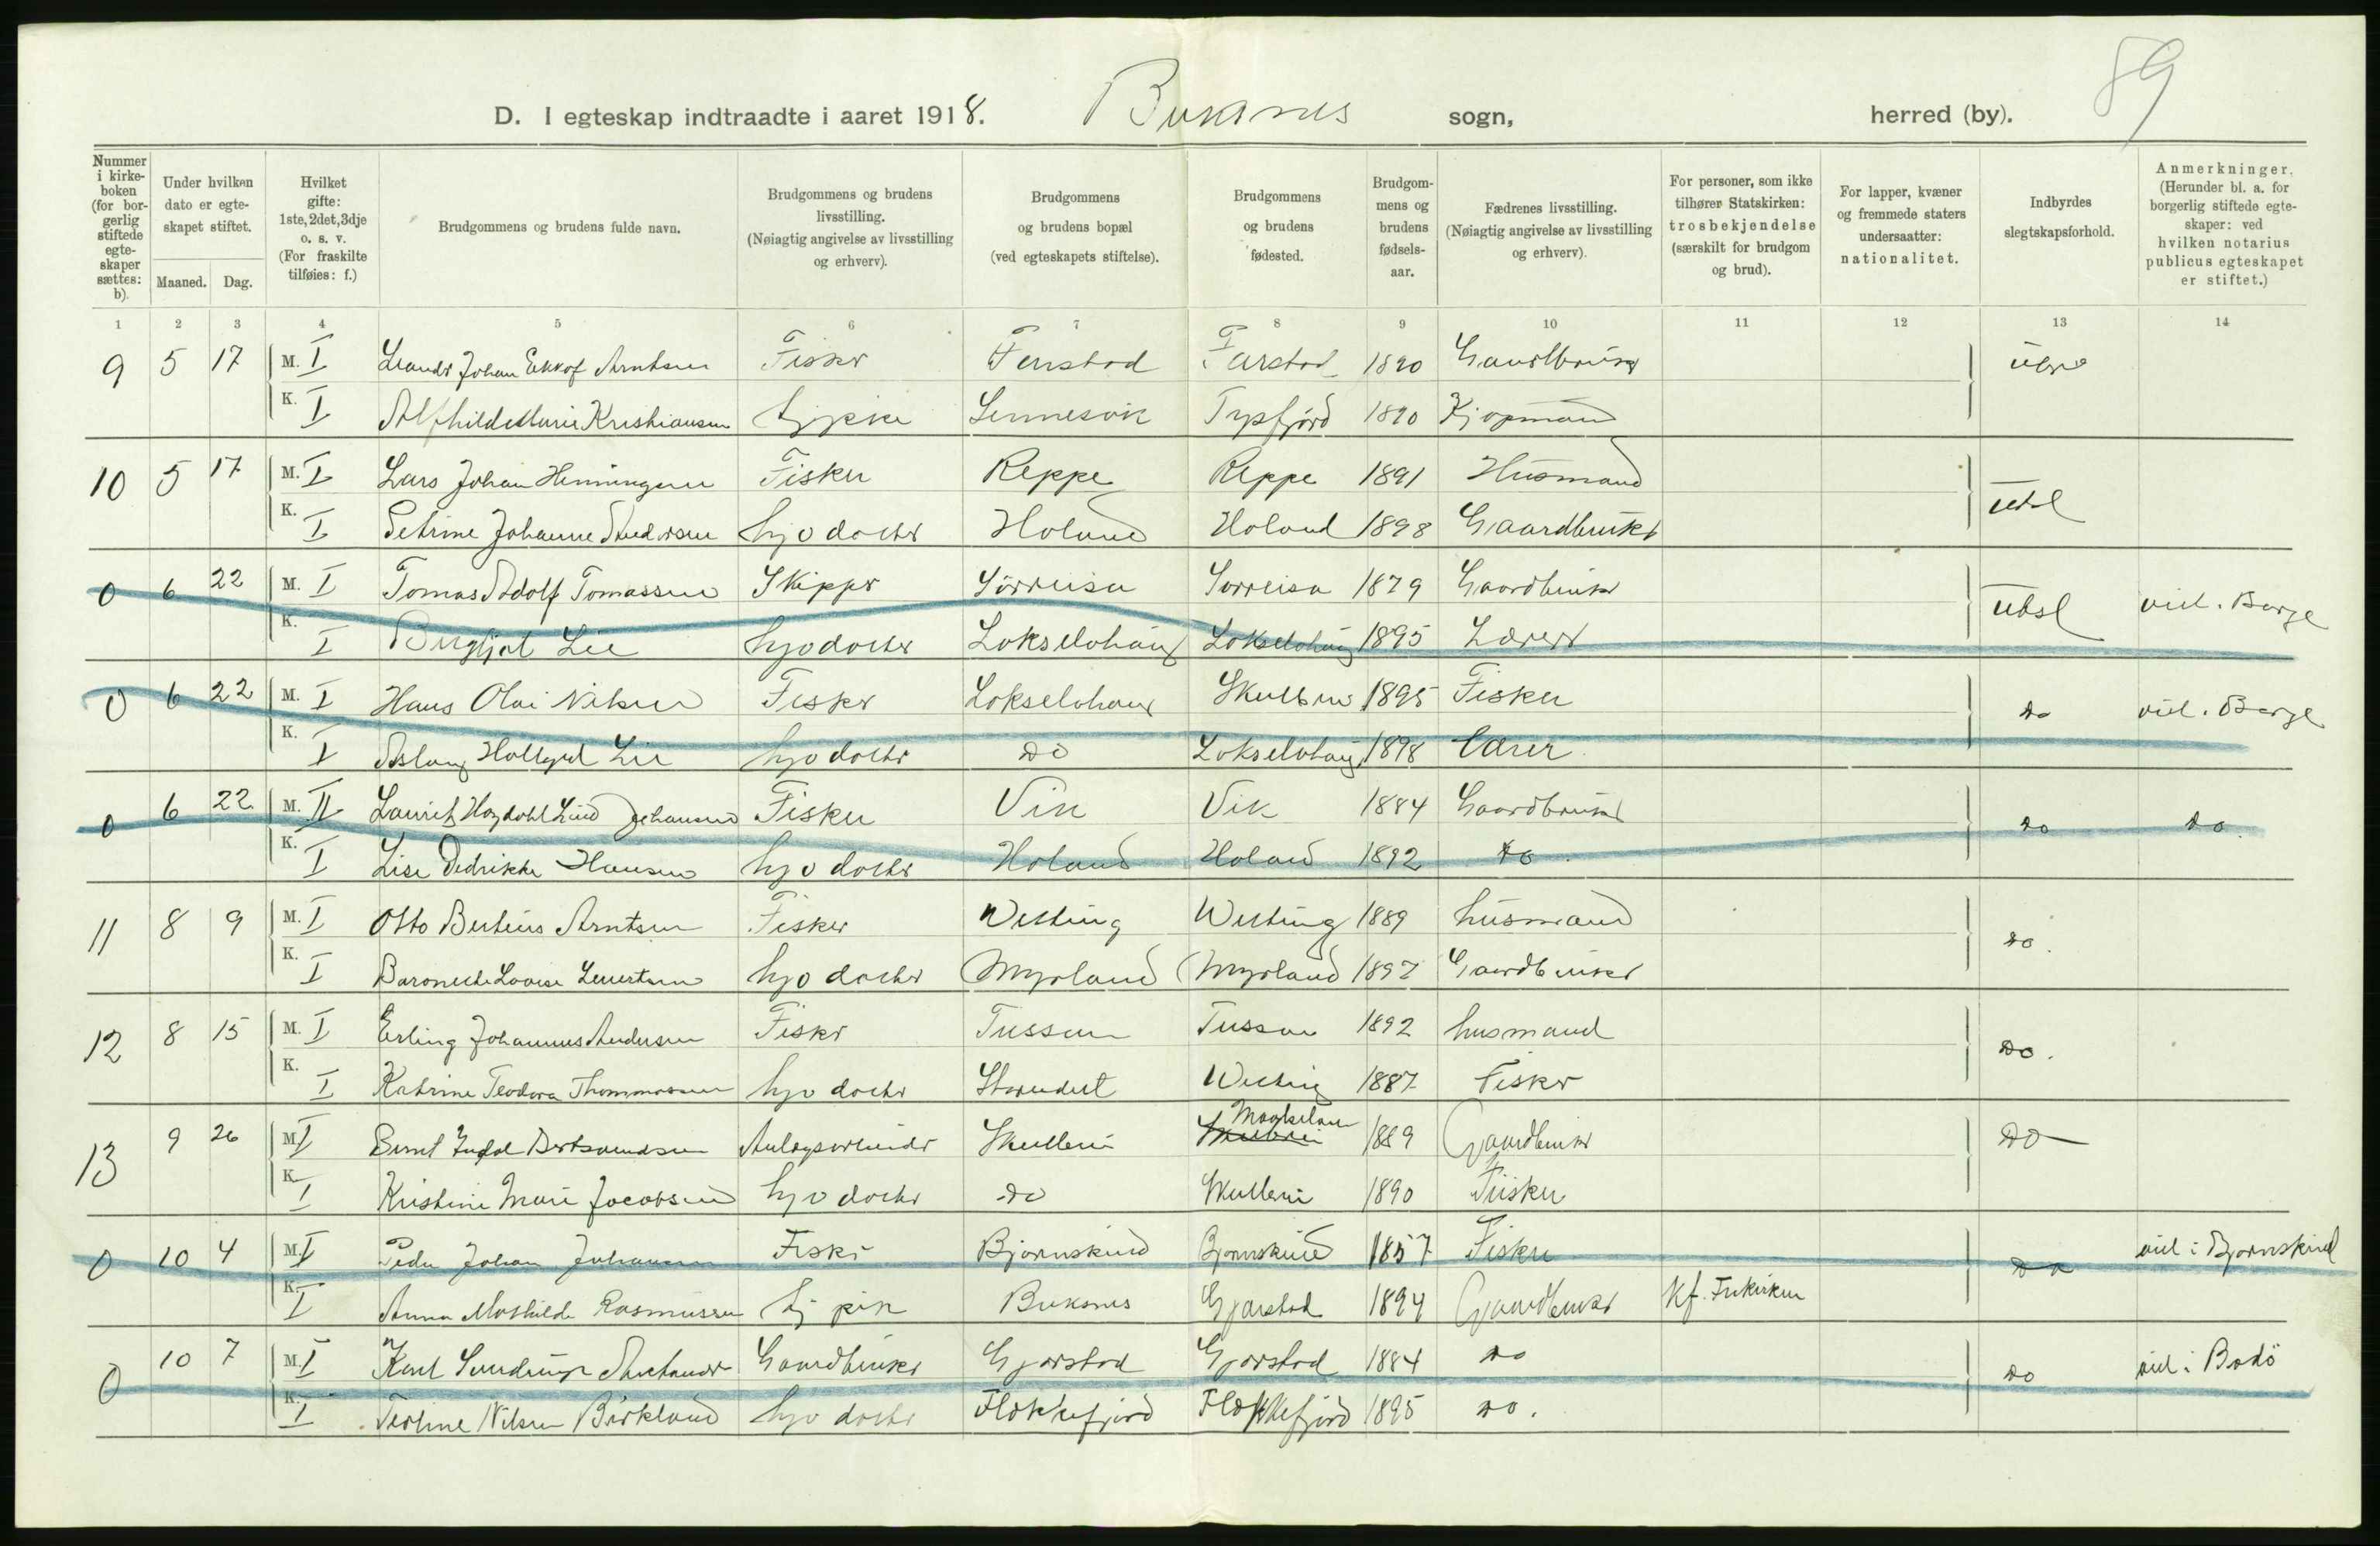 89
D. I egteskap indtraadte i aaret 1918. Buksnes sogn, herred (by).
Nummer i kirkeboken (for borgerlig stiftede egteskaper sættes: b).
Under hvilken dato er egteskapet stiftet.
Maaned. Dag.
Hvilket gifte: 1ste, 2det, 3dje o. s. v. (For fraskilte tilføies: f.)
Brudgommens og brudens fulde navn.
Brudgommens og brudens livsstilling. (Nøiagtig angivelse av livsstilling og erhverv).
Brudgommens og brudens bopæl (ved egteskapets stiftelse).
Brudgommens og brudens fødested.
Brudgommens og brudens fødselsaar.
Fædrenes livsstilling. (Nøiagtig angivelse av livsstilling og erhverv).
For personer, som ikke tilhører Statskirken: trosbekjendelse (særskilt for brudgom og brud).
For lapper, kvæner og fremmede staters undersaatter: nationalitet.
Indbyrdes slegtskapsforhold.
Anmerkninger. (Herunder bl. a. for borgerlig stiftede egteskaper: ved hvilken notarius publicus egteskapet er stiftet.)
1 2 3 4 5 6 7 8 9 10 11 12 13 14
9 5 17 M. I Johan Arntsen Fisker Farstad Farstad 1890 Gaardbruker
K. I Alfhilde Marie Kristiansen tjpike Lennesvik Tysfjord 1890 Kjøpmand
10 5 17 M. I Lars Johan Henningsen Fisker Reppe Reppe 1891 Husmand
K. I Petrine Johanne Andersen hjo datter Holand Holand 1898 Gaardbruker ubsl
0 6 22 M. I Tomas Adolf Tomassen Skipper Sörreisa Sorreisa 1879 Gaardbruker ubsl viel. Borge
K. I Bergljot Lie hjo datter Lokselvhaug Lokselvhaug 1895 Lærer
0 6 22 M. I Hans Olai Nilsen Fisker Lokselvhaug Skulbru 1895 Fisker do viel. Borge
K. I Aslaug Hallgjed Lie hjo datter do Lokselvhaug 1898 Lærer
0 6 22 M. II Laurits Hogdahl Lind Johansen Fisker Vik Vik 1884 Gaardbruker do do.
K. I Lise Dedrikke Hansen hjo datter Holand Holand 1892 do.
11 8 9 M. I Otto Berteus Arntsen Fisker Westing Westing 1889 husmand do.
K. I Lovise Lennertsen hjo datter Myrland Myrland 1897 Gaardbruker
12 8 15 M. I Erling Johannes Andersen Fisker Tussan Tussan 1892 husmand do.
K. I Katrine Teodora Thommassen hjo datter Strendet Westing 1887 Fisker
13 9 26 M. I Bernt Anlegsarbeider Skulbru 1889 Gaardbruker do
K. I Kristine Marie Jacobsen hjo datter do Skulbru 1890 Fisker
0 10 4 M. I Peder Johan Johansen Fisker Bjørnskind Bjørnskind 1857 Fisker do viel i Bjørnskind
K. I Anna Mathilde Rasmussen tj pike Buksnes Gjerstad 1894 Gaardbruker Kf. Frikirken
0 10 7 M. I Karl Gaardbruker Gjerstad Gjerstad 1884 do do viel i Bodö
K. I Teoline Nilsen Birkland hjo datter Flakkefjord Flakkefjord 1895 do.